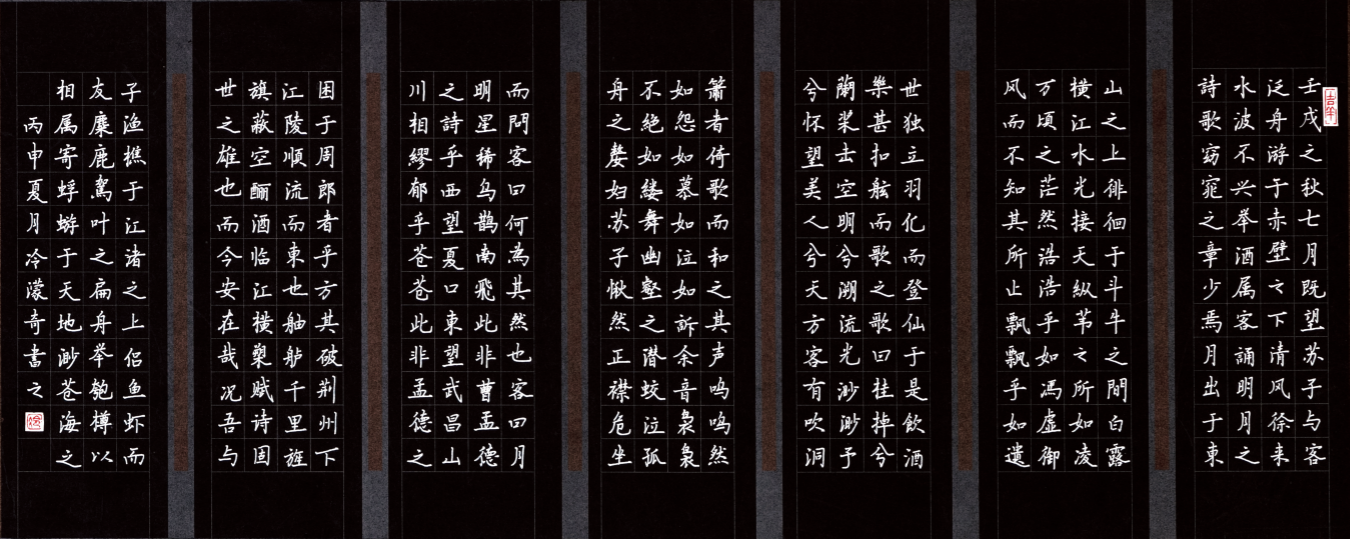 壬戌之秋七月既望苏子与客
泛舟游于赤壁之下清风徐来
水波不兴举酒属客誦明月之
詩歌窈窕之章少焉月出于東
山之上徘徊于斗牛之間白露
横江水光接天纵苇之所如凌
万頃之茫然浩浩乎如馮虚御
风而不知其所止飘飘乎如遗
世独立羽化而登仙于是飲酒
樂甚扣舷而歌之歌曰桂棹兮
蘭桨击空明兮溯流光渺渺予
兮怀望美人兮天方客有吹洞
箫者倚歌而和之其声呜呜然
如怨如慕如泣如訴余音袅袅
不绝如缕舞幽壑之潜蛟泣孤
舟之嫠妇苏子愀然正襟危坐
而問客曰何為其然也客曰月
明星稀乌鹊南飛此非曹孟德
之詩乎西望夏口東望武昌山
川相缪郁乎苍苍此非孟德之
困于周郎者乎方其破荆州下
江陵順流而東也舳舻千里旌
旗蔽空酾酒临江横槊赋诗固
世之雄也而今安在哉况吾与
子渔樵于江渚之上侣鱼虾而
友麋鹿駕叶之扁舟举匏樽以
相属寄蜉蝣于天地渺苍海之
丙申夏月冷濛奇書之